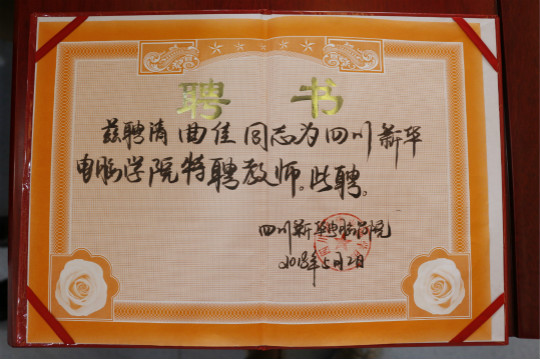 聘 书
兹聘请曲佳同志为四川新华
电脑学院特聘教师。此聘。
四川新华电脑学院
2018年5月2日